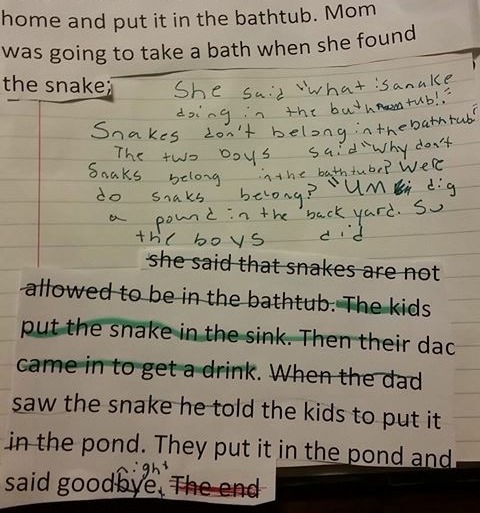 home and put it in the bathtub. Mom
was going to take a bath when she found
the snake;
She said "what is anake
doing in the bath tub!"
Snakes don't belong in the bathtub"
The two boys said "Why don't
Snaks belong in the bathtube? Were
do snaks belong? "Um dig
a pound in the back yard. So
the boys did
she said that snakes are not
allowed to be in the bathtub. The kids
put the snake in the sink. Then their dac
came in to get a drink. When the dad
saw the snake he told the kids to put it
in the pond. They put it in the pond and
ight
said goodbye. The end